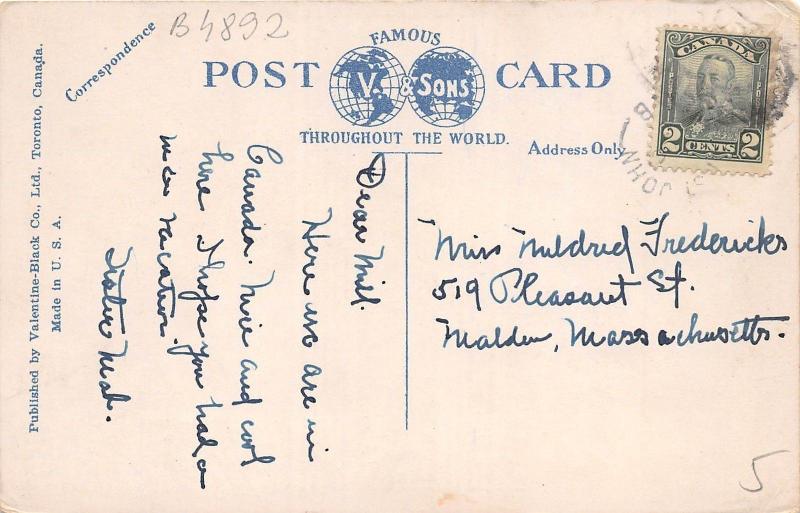 B4892
Correspondence
FAMOUS
POST CARD
V. & SONS
THROUGHOUT THE WORLD.
Address Only
CANADA
POSTES POSTAGE
2 CENTS 2
ST JOHN
Published by Valentine-Black Co., Ltd., Toronto, Canada.
Made in U. S. A.
Dear Mil.
Here we are in
Canada. Nice and cool
here. I hope you had a
nice vacation.
Sister
Miss Mildred Fredericks
519 Pleasant St.
Malden, Massachusetts.
5